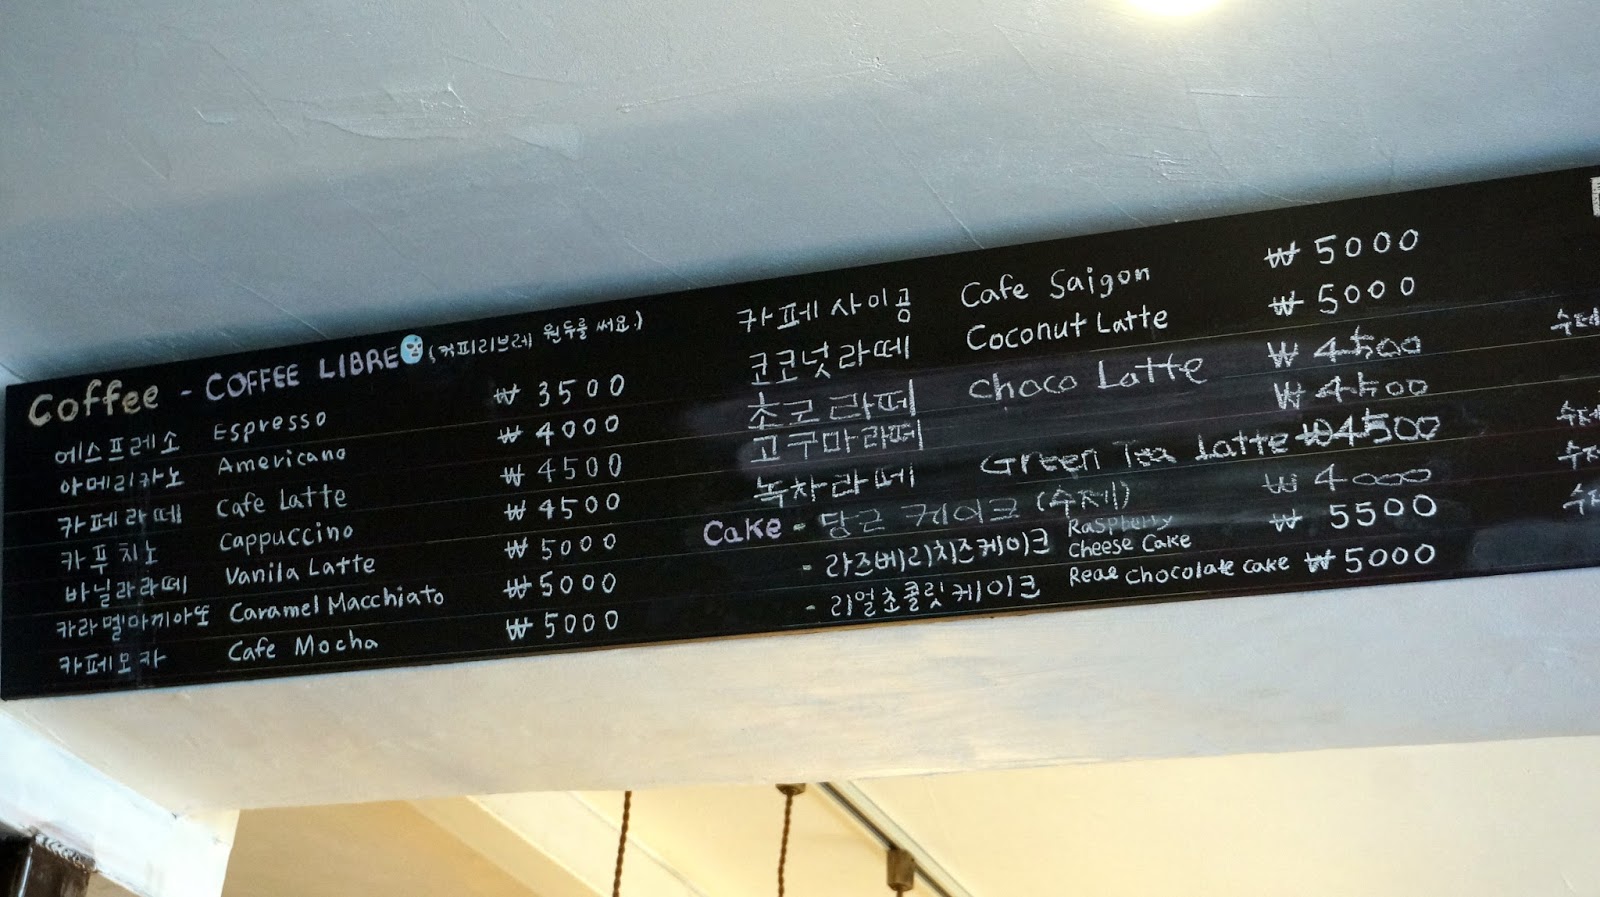 Coffee - COFFEE LIBRE (커피리브레 원두를 써요.)
에스프레소 Espresso ₩ 3500
아메리카노 Americano ₩ 4000
카페라떼 Cafe Latte ₩ 4500
카푸치노 Cappuccino ₩ 4500
바닐라라떼 Vanila Latte ₩ 5000
카라멜마끼아또 Caramel Macchiato ₩ 5000
카페모카 Cafe Mocha ₩ 5000
카페사이공 Cafe Saigon ₩ 5000
코코넛라떼 Coconut Latte ₩ 5000
초코라떼 Choco Latte ₩ 4500
고구마라떼 ₩ 4500
녹차라떼 Green Tea Latte ₩4500
Cake - 당근 케이크 (수제) ₩ 4000
- 라즈베리치즈케이크 Raspberry Cheese Cake ₩ 5500
- 리얼초콜릿케이크 Real Chocolate Cake ₩ 5000